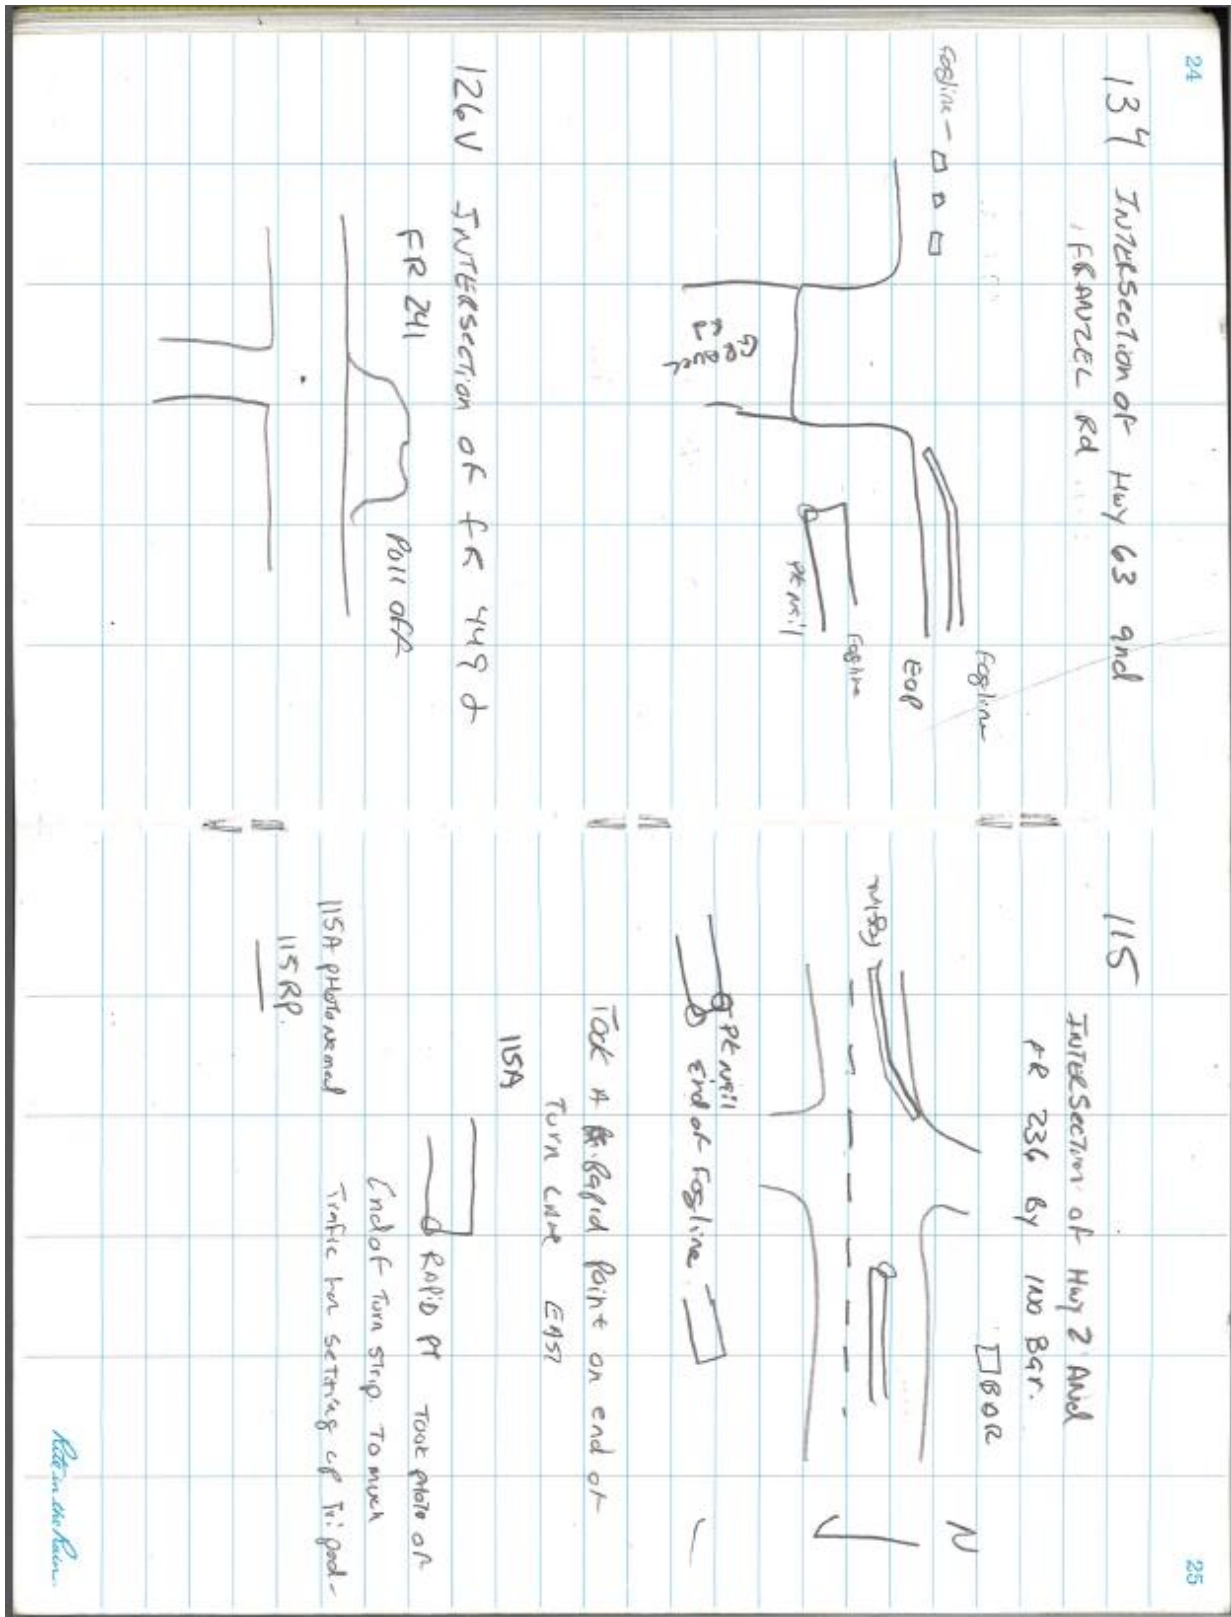 24
134 INTERSECTION OF HWY 63 and
FRANZEL Rd
Fogline
Fogline
EOP
Fogline
PK Nail
GRAVEL
Rd
126V INTERSECTION OF FR 449 &
FR 241
Pull off
25
115
INTERSECTION of Hwy 2 AND
FR 236 By INO Bar.
BAR
N
Fogline
PK Nail
End of Fogline
Took A Rapid Point on end of
Turn Lane EAST
115A
RAPID PT Took photo of
End of Turn Strip. To much
Trafic for setting up Tripod-
115A photo
115 RP.
Rite in the Rain